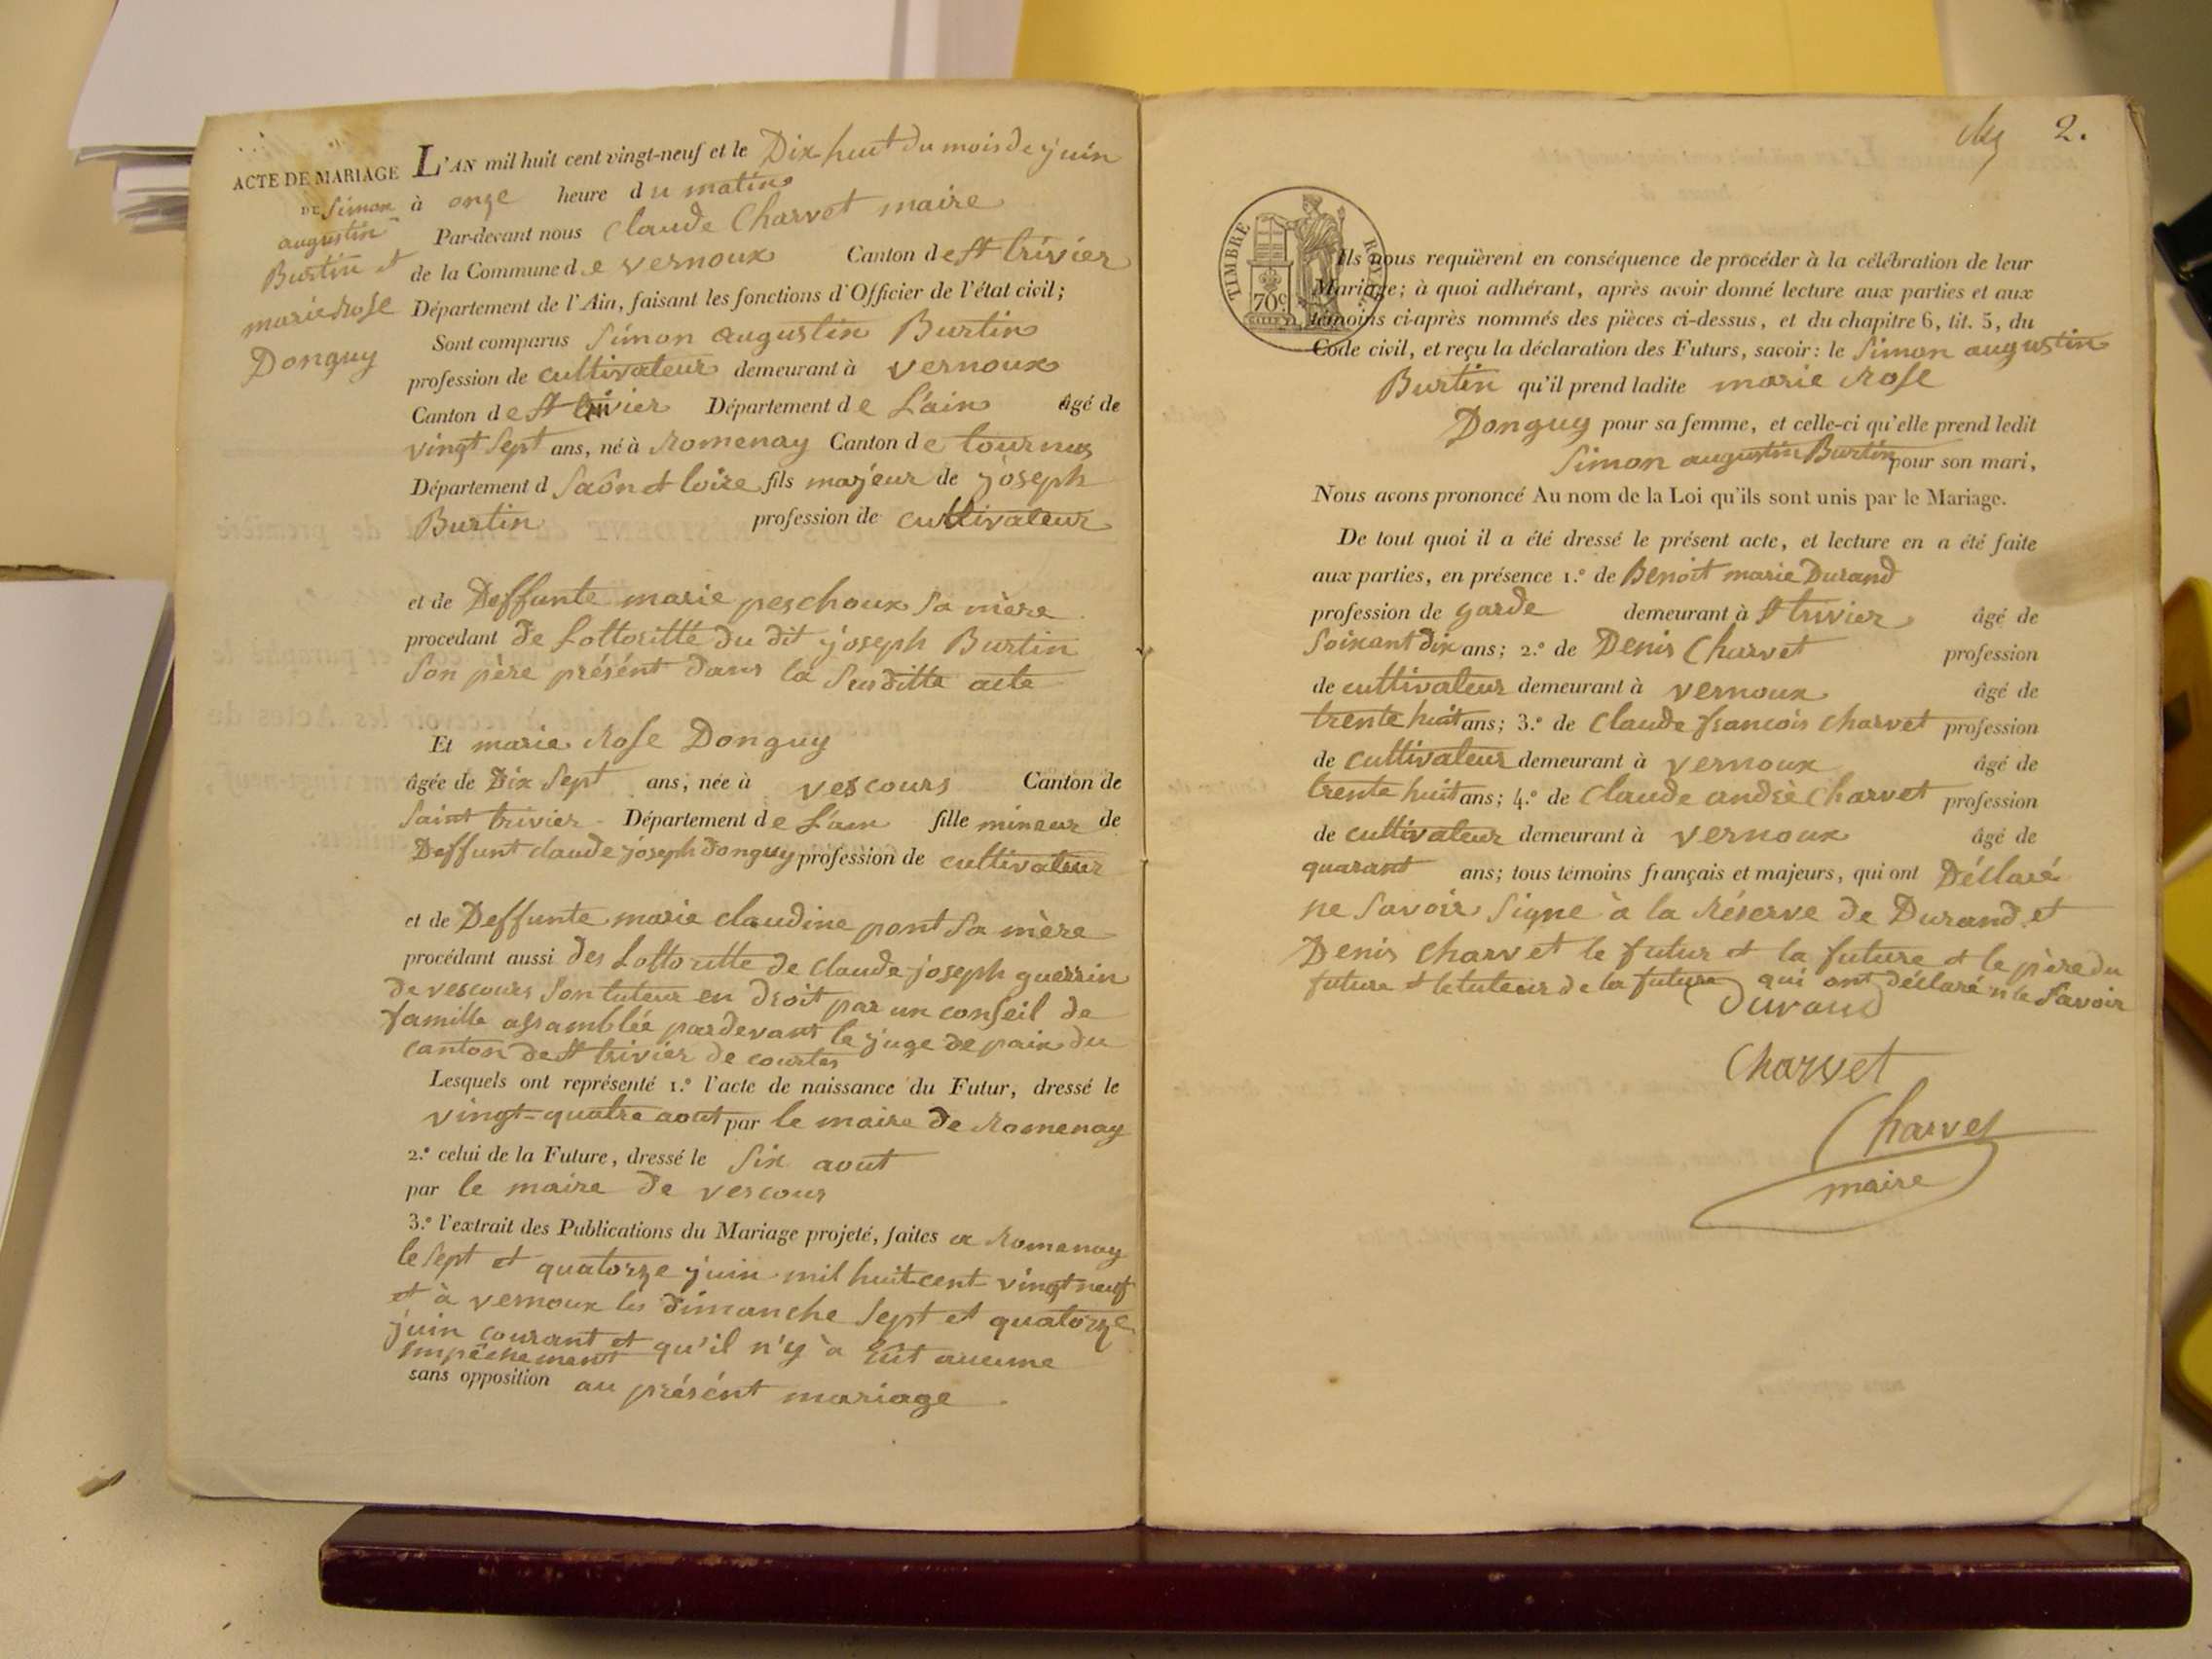 ACTE DE MARIAGE
DE Simon
augustin
Burtin et
marie Rose
Donguy
L'AN mil huit cent vingt-neuf et le Dix huit du mois de juin
à onze heure du matin
Par-devant nous Claude Charvet maire
de la Commune de vernoux Canton de st trivier
Département de l'Ain, faisant les fonctions d'Officier de l'état civil;
Sont comparus Simon augustin Burtin
profession de cultivateur demeurant à vernoux
Canton de st trivier Département de L'ain âgé de
vingt Sept ans, né à Romenay Canton de tournus
Département d Saôn et loire fils majeur de joseph
Burtin profession de cultivateur
et de Deffunte marie peschoux sa mère
procedant de Lottoritté du dit joseph Burtin
Son père présént dans la Susditte acte
Et marie Rose Donguy
âgée de Dix Sept ans; née à vescours Canton de
Saint trivier Département de L'ain fille mineur de
Deffunt claude joseph donguy profession de cultivateur
et de Deffunte marie claudine pont Sa mère
procédant aussi des Lottoritte de claude joseph guerrin
de vescours Son tuteur en droit par un conseil de
famille assamblée pardevant le juge de paix du
canton de st trivier de courtes
Lesquels ont représenté 1.° l'acte de naissance du Futur, dressé le
vingt-quatre aout par le maire de Romenay
2.° celui de la Future, dressé le Six aout
par le maire de vescour
3.° l'extrait des Publications du Mariage projeté, faites a Romenay
le Sept et quatorze juin mil huit cent vingt neuf
et à vernoux les dimanche Sept et quatorze
juin courant et qu'il n'y à eut aucune
Impéchement
sans opposition au présént mariage
2.
TIMBRE ROYAL
70c
Ils nous requièrent en conséquence de procéder à la célébration de leur
Mariage; à quoi adhérant, après avoir donné lecture aux parties et aux
témoins ci-après nommés des pièces ci-dessus, et du chapitre 6, tit. 5, du
Code civil, et reçu la déclaration des Futurs, savoir: le Simon augustin
Burtin qu'il prend ladite marie Rose
Donguy pour sa femme, et celle-ci qu'elle prend ledit
Simon augustin Burtin pour son mari,
Nous avons prononcé Au nom de la Loi qu'ils sont unis par le Mariage.
De tout quoi il a été dressé le présent acte, et lecture en a été faite
aux parties, en présence 1.° de Benoit marie Durand
profession de garde demeurant à st trivier âgé de
Soixant dix ans; 2.° de Denis Charvet profession
de cultivateur demeurant à vernoux âgé de
trente huit ans; 3.° de Claude francois charvet profession
de cultivateur demeurant à vernoux âgé de
trente huit ans; 4.° de Claude andrè Charvet profession
de cultivateur demeurant à vernoux âgé de
quarant ans; tous témoins français et majeurs, qui ont Déclaré
ne Savoir Signe à la Réserve de Durand et
Denis Charvet le futur et la future et le père du
future et le tuteur de la future qui ont déclaré ne Savoir
Durand
Charvet
Charvet
maire